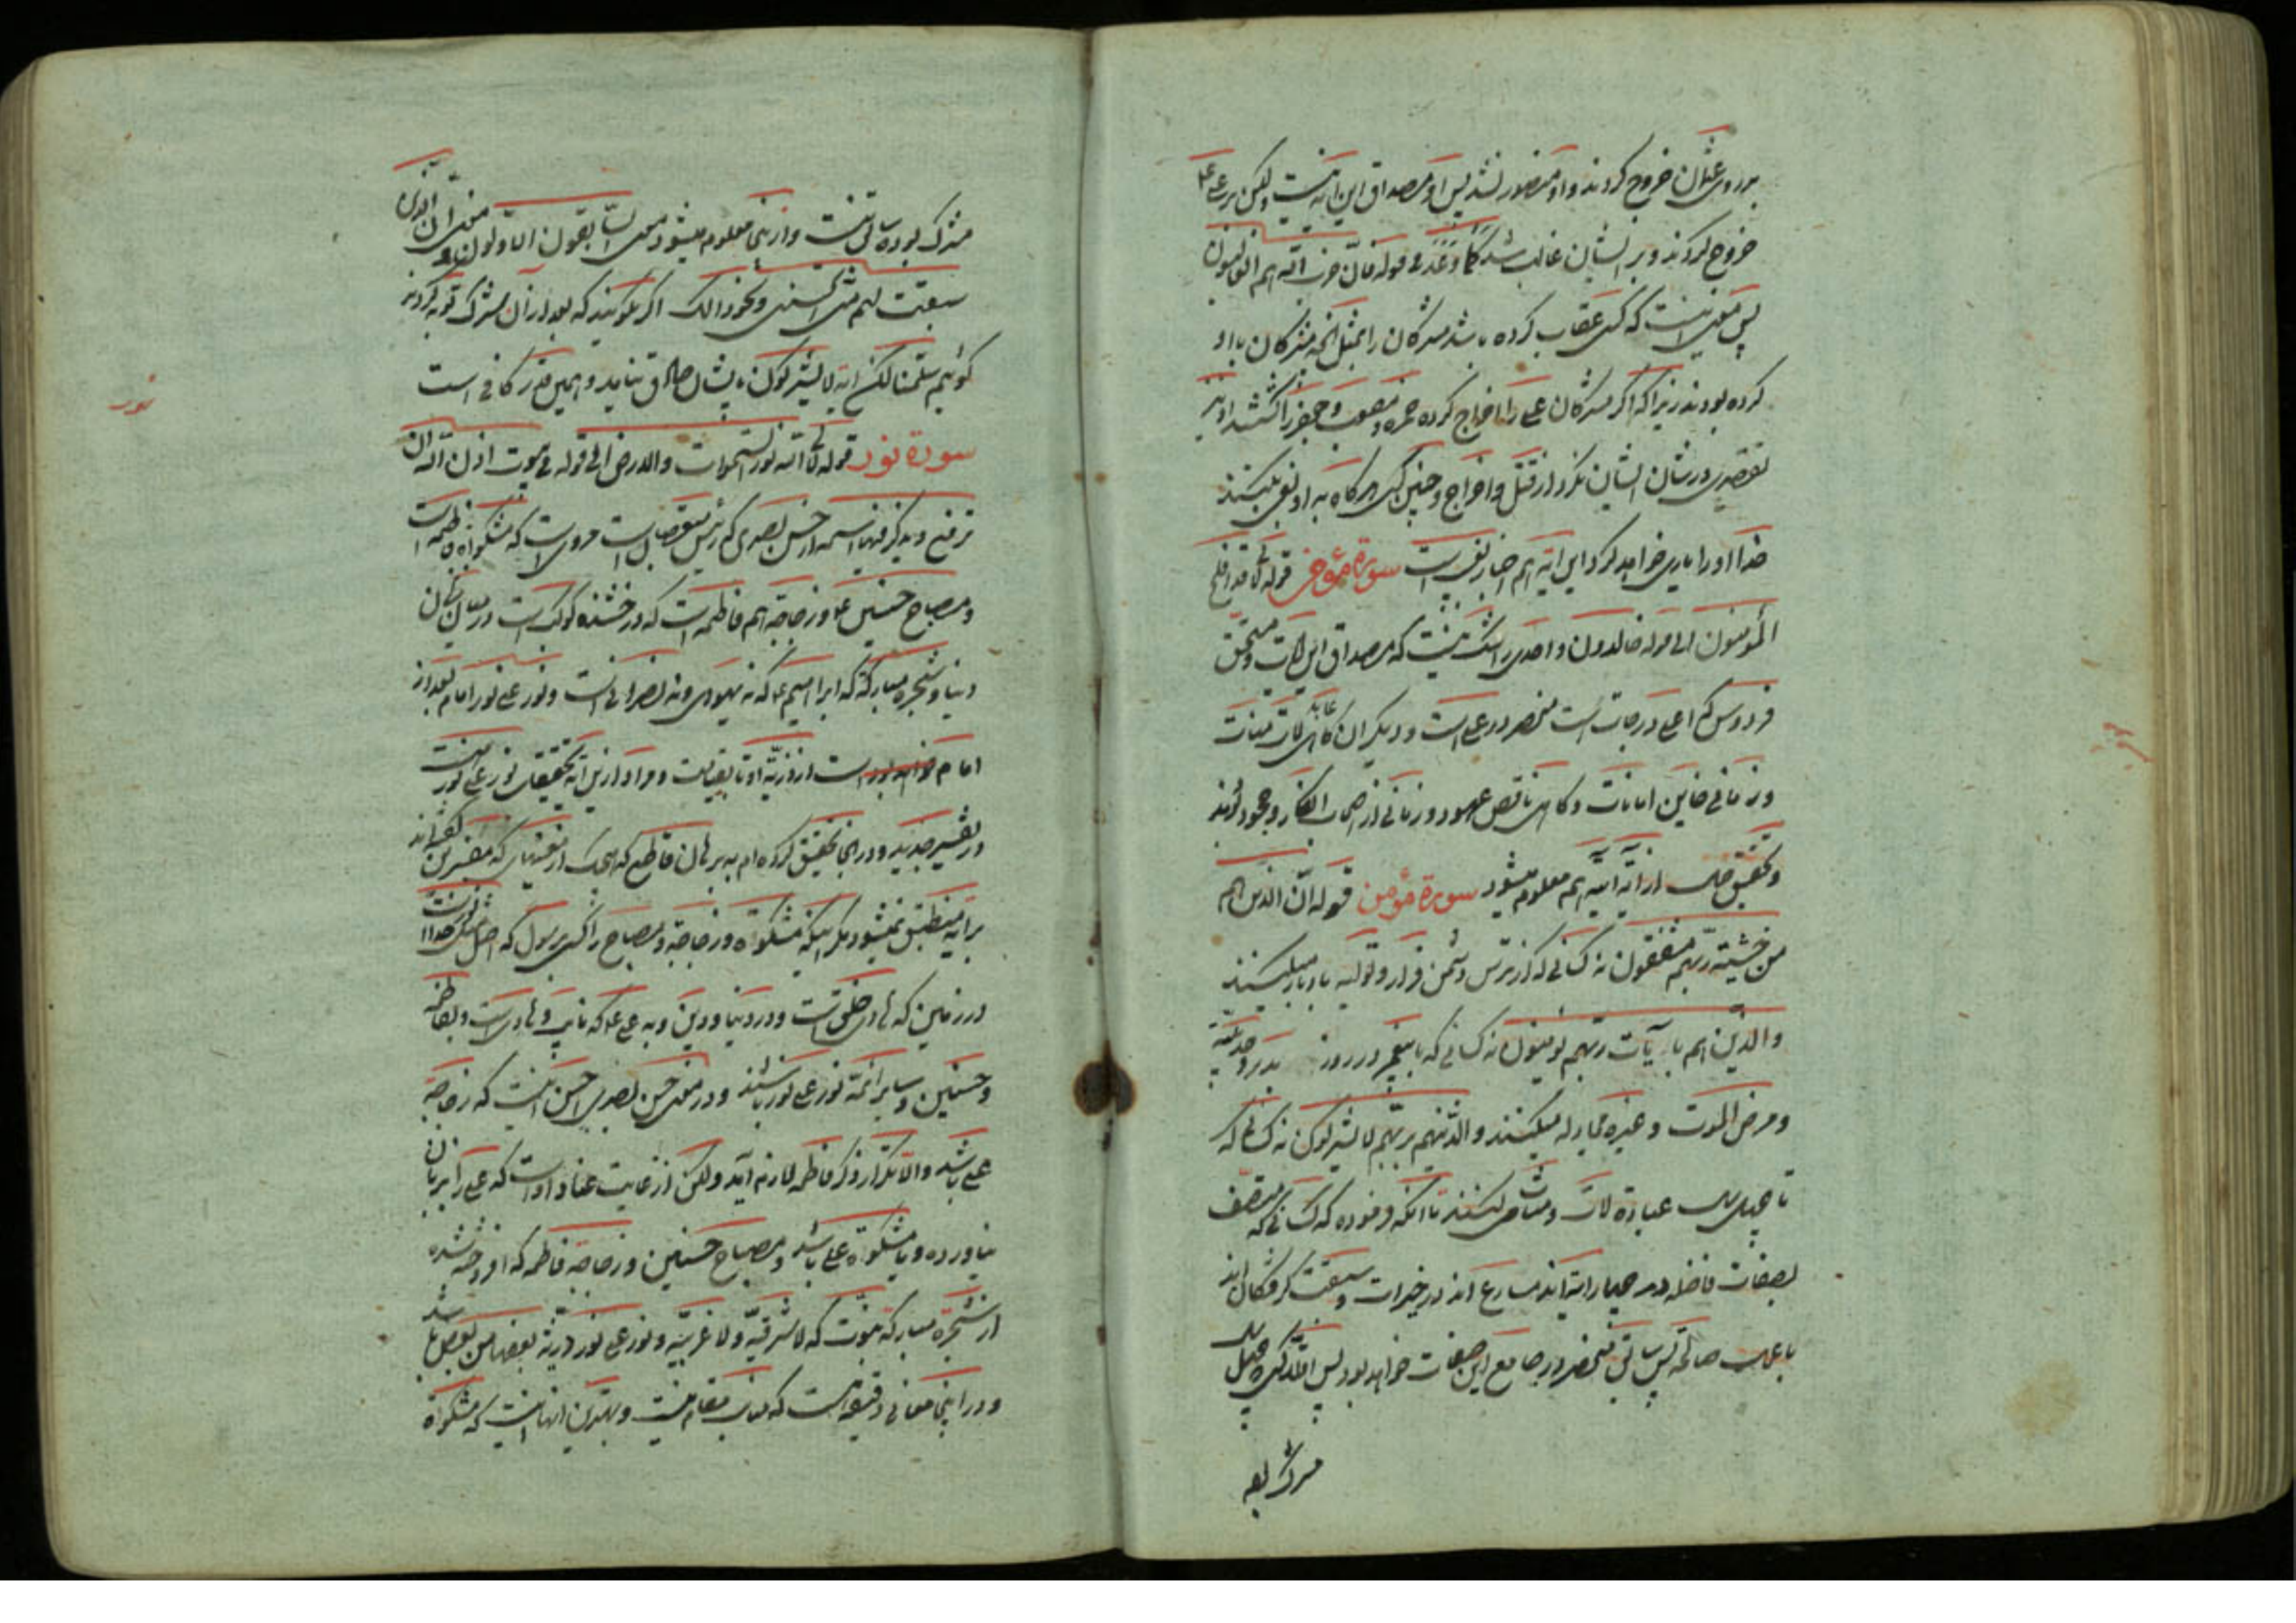 بر روی عثمان خروج کردند و او منصور نشد پس او مصداق این آیه نیست ولیکن بر علی ع
خروج کردند و بر ایشان غالب شد کما وعد فی قوله فان حزب الله هم الغالبون
پس معنی اینست که کسی عقاب کرده باشد مشرکان را بمثل آنچه مشرکان با او
کرده بودند زیرا که اگر مشرکان علی را اخراج کرده حمزه و جعفر را کشتند او نیز
تقصیری در شان ایشان نکرد از قتل و اخراج و چنین کسی هرگاه به او بغی بکنند
خدا او را یاری خواهد کرد این آیه هم اخبار بغیب است سورة مؤمن قوله تعالی قد افلح
المؤمنون الی قوله خالدون و احدی را شک نیست که مصداق این آیات و مستحق
فردوس که اعلی درجات است منحصر در علی است و دیگران گاهی عابد لات منات
و زمانی خاین امانات و گاهی ناقص عهود و زمانی از اصحاب انکار و جحود بودند
و تحقیق از آیه آتیه هم معلوم میشود سورة مؤمن قوله ان الذین هم
من خشیة ربهم مشفقون نه کسانی که از ترس دشمن فرار و تولیه بادبار میکنند
والذین هم بآیات ربهم یؤمنون نه کسانی که با پیغمبر در روز بدر و حدیبیه
و مرض الموت و غیره مجادله میکنند والذینهم بربهم لا یشرکون نه کسانی که
تا چهل سال عبادة لات و منات میکنند تا آنکه فرموده که کسانی که متصف
بصفات فاضله در چهار آیه اند مسارع اند در خیرات و سبقت گرفتگان اند
باعمال صالحه پس سابق منحصر در جامع این صفات خواهد بود پس آنکه چهل سال
مشرک بوده
مشرک بوده سابق نیست و ازینجا معلوم میشود معنی السابقون الاولون و معنی ان الذین
سبقت لهم منا الحسنی و نحو ذالک اگر بگویند که بعد از آن شرک توبه کردند
گوئیم سلمنا لکن آیه لا یشرکون بایشان صادق نیاید و همین قدر کافی است
سورة نور قوله تعالی الله نور السموات والارض الی قوله فی بیوت اذن الله ان
ترفع و یذکر فیها اسمه از حسن بصری که رئیس متعصبان است مروی است که مشکواة فاطمه است
و مصباح حسنین ع و زجاجه هم فاطمه است که درخشنده کوکب است در میان زنان
دنیا و شجره مبارکه که ابراهیم ع که نه یهودی و نه نصرانی است و نور علی نور امام بعد از
امام است از ذریة او تا بقیامت و مراد ازین آیه تحقیق نور علی نور
در تفسیر جدید و در آنجا تحقیق کرده ام به برهان قاطع که هیچیک از معنیهای که مفسرین گفته اند
بر آیه منطبق نمیشود مگر اینکه مشکواة و زجاجه و مصباح را کسی برسول که اصل
در زمین که هادی خلق است و در دنیا و دین و به علی ع که نایب و هادی است و بفاطمه
و حسنین و سایر ائمه نور علی نور باشند و در معنی حسن بصری احسن اینست که زجاجه
علی باشد والا تکرار ذکر فاطمه لازم آید ولکن از غایت عناد است که علی را بر زبان
نیاورده و یا مشکواة علی باشد و مصباح حسنین و زجاجه فاطمه که افروخته شده
از شجره مبارکه نبوت که لا شرقیه و لا غربیه و نور علی نور ذریة بعضها من بعض باشد
و در اینجا معانی دقیقه است که مناسب مقام نیست و بهترین آنها اینست که مشکواة
نور